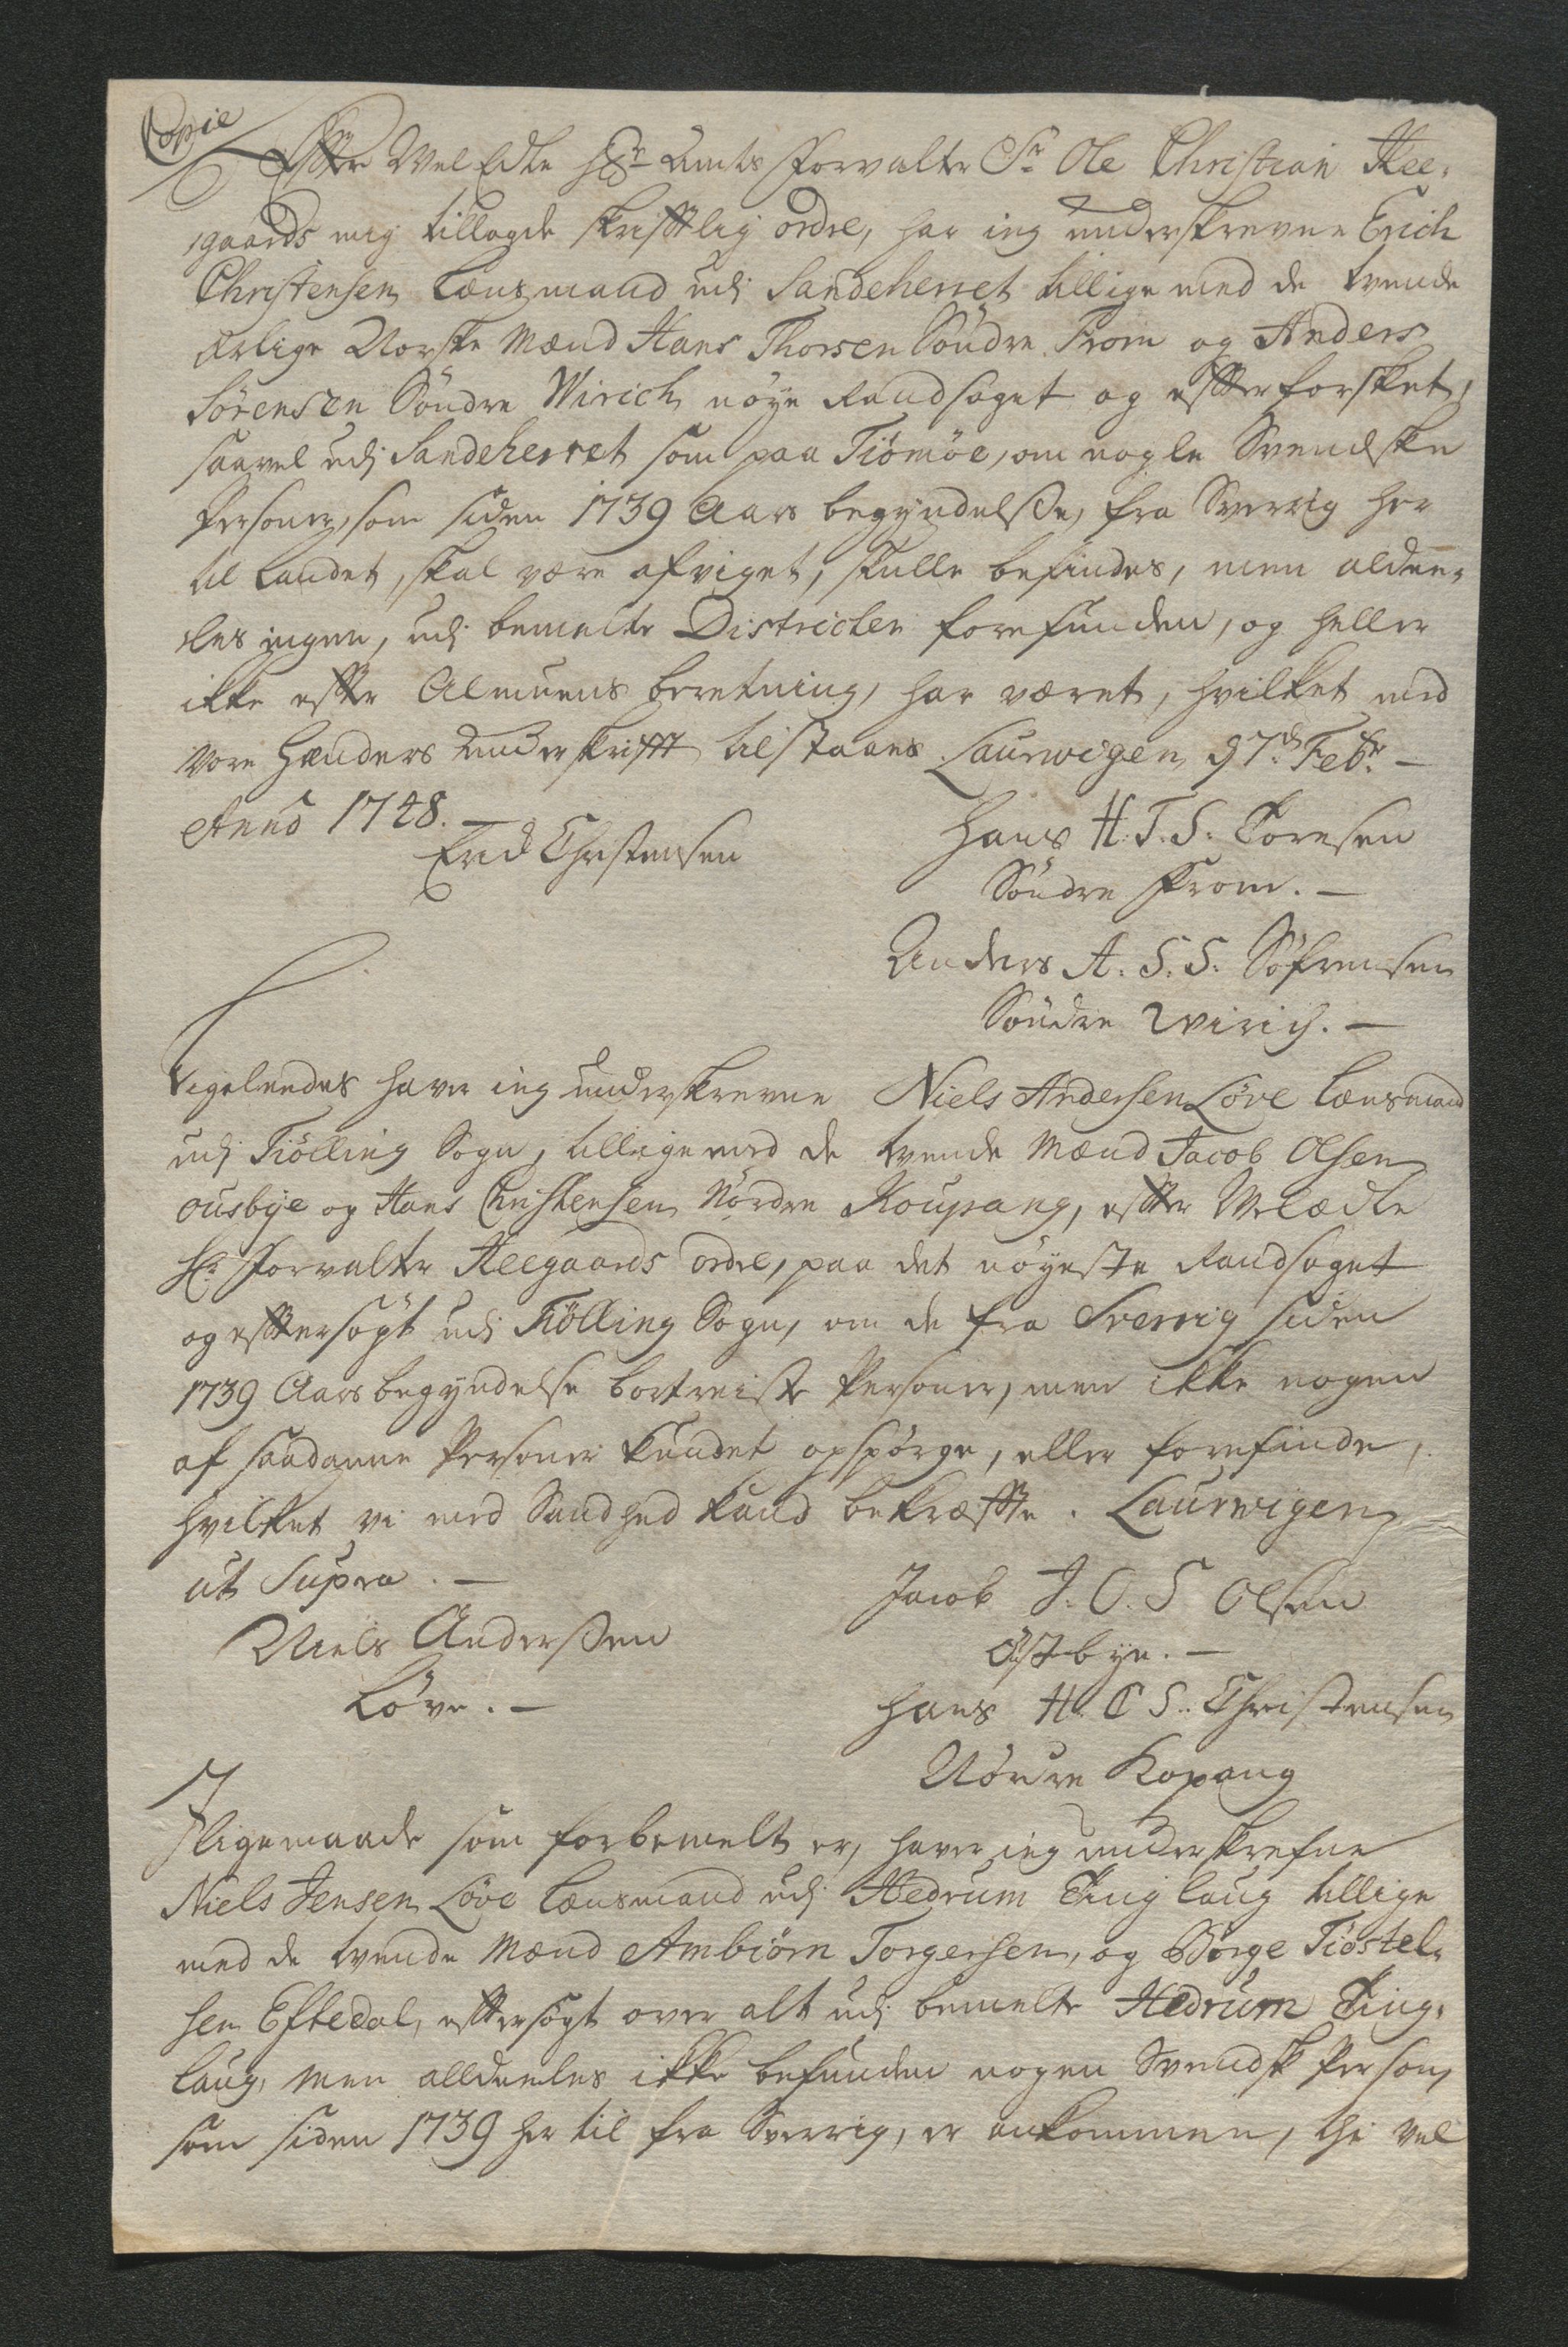 Copie
Efter Wel Edle Hr Amts Forvalter Sr Ole Christian Hee-
gaards mig tillagde skriftlig ordre, har ieg underskrevne Erich
Christensen Lensmand udj Sandeherret tillige med de tvende
Ærlige Norske Mænd Hans Thorsen Söndre From og Anders
Sörensen Söndre Wirich nöye Randsaget og efterforsket,
saavel udj Sandeherret som paa Tiömöe, om nogle Svendske
Personer, som siden 1739 Aars begyndelsse, fra Sverrig her
til Landet, skal være afviget, skulle befindes, men aldee-
les ingen, udj bemelte Districter forefunden, og heller
ikke efter Almuens beretning, har været, hvilket med
vore Hænders Underskrift tilstaaes Laurwigen 97d Febr. —
Anno 1748. —
Erich Christensen
Hans H. T. S. Toresen
Söndre From. —
Anders A. S. S. Söfrensen
Söndre Wirich. —
Ligeleedes haver ieg underskrevne Niels Andersen Löve Lensmand
udj Tiölling Sogn, tillige med de tvende Mænd Jacob Olsen
Ousbye og Hans Christensen Nördre Koupang, efter Welædle
Hr Forvalter Heegaards ordre, paa det nöyeste Randsaget
og eftersögt udj Tiölling Sogn, om de fra Sverrig siden
1739 Aars begyndelse bortreiste Personer, men ikke nogen
af saadanne Personer kundet opspörge, eller forefinde,
hvilket vi med Sandhed kand bekræfte. Laurwigen
ut Supra. —
Niels Anderssen
Löve. —
Jacob J. O. S Olsen
Östbye. —
Hans H. C S. Christensen
Nördre Kopang
I ligemaade som forbemelt er, haver ieg underskrefne
Niels Jensen Löve Lensmand udj Hedrum Ting laug tillige
med de tvende Mænd Ambiörn Torgersen, og Börge Tiöstel-
sen Eftedal, eftersögt over alt udj bemelte Hedrum Ting-
laug, men alldeeles ikke befunden nogen Svendsk Person,
som siden 1739 her til fra Sverrig, er ankommen, thi vel